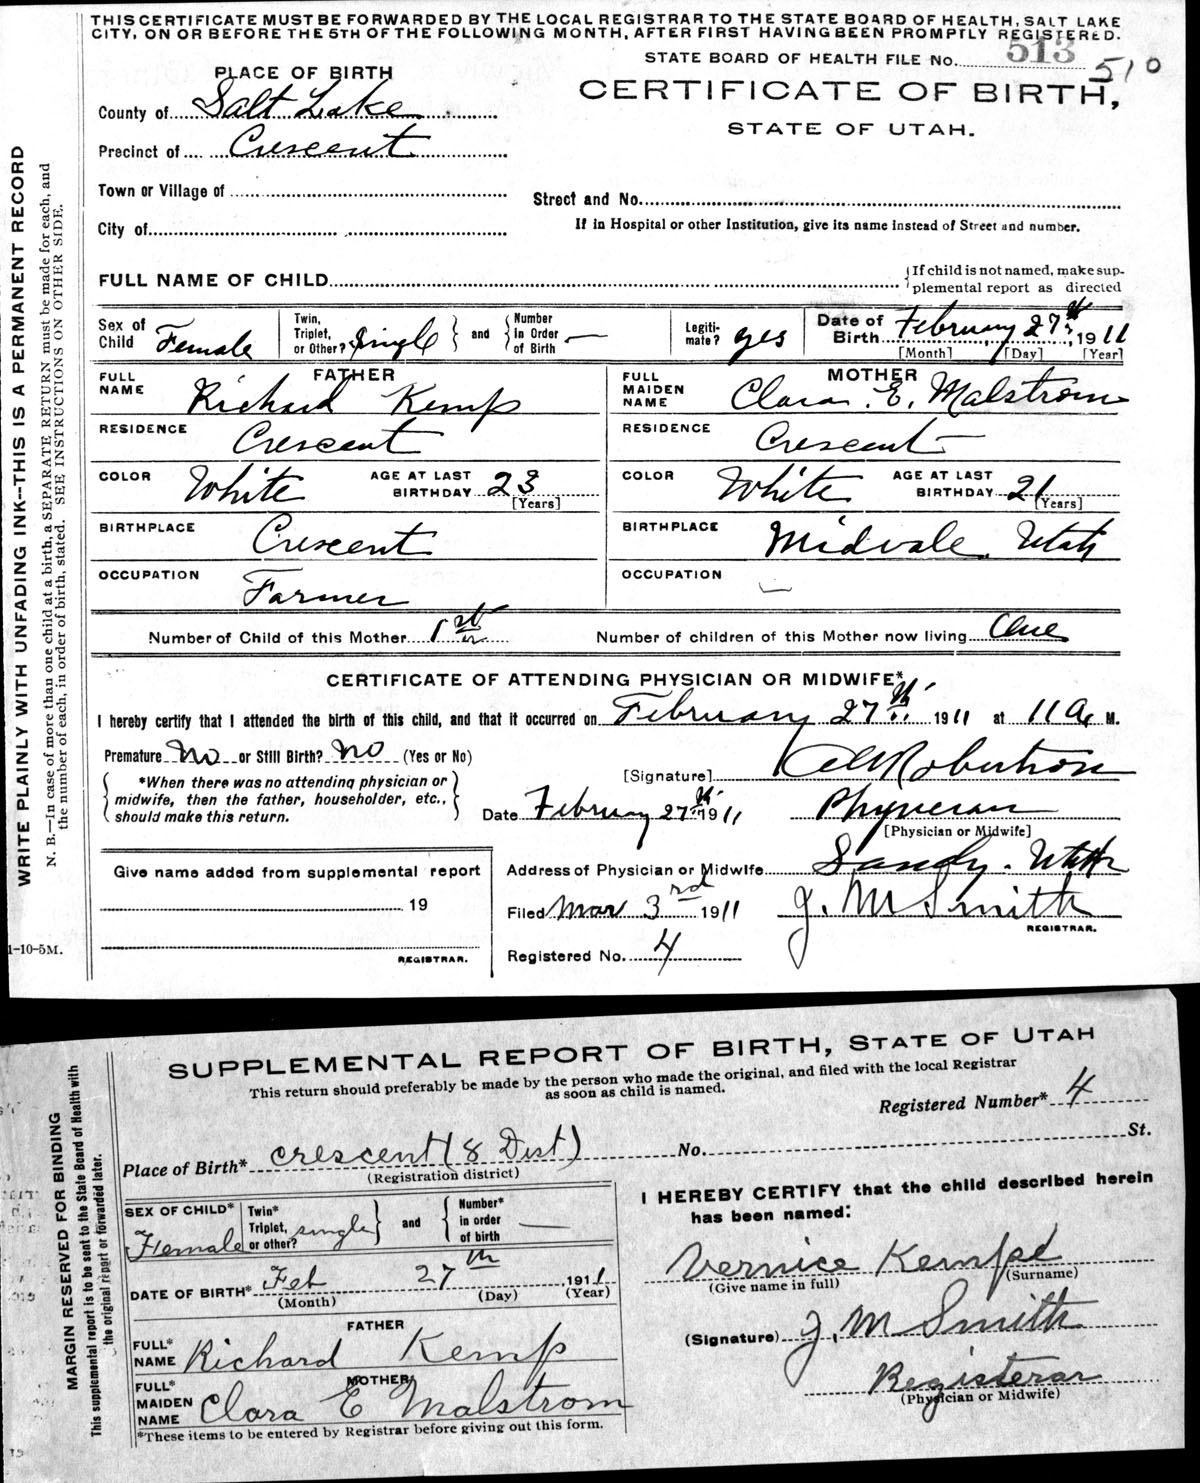 THIS CERTIFICATE MUST BE FORWARDED BY THE LOCAL REGISTRAR TO THE STATE BOARD OF HEALTH, SALT LAKE
CITY, ON OR BEFORE THE 5TH OF THE FOLLOWING MONTH, AFTER FIRST HAVING BEEN PROMPTLY REGISTERED.
STATE BOARD OF HEALTH FILE No. 513 510
PLACE OF BIRTH
CERTIFICATE OF BIRTH,
STATE OF UTAH.
County of Salt Lake
Precinct of Crescent
Town or Village of
Street and No.
City of
If in Hospital or other Institution, give its name instead of Street and number.
FULL NAME OF CHILD
If child is not named, make sup-
plemental report as directed
Sex of Child Female
Twin, Triplet, or Other? Single and Number In Order of Birth —
Legiti- mate? yes
Date of Birth February 27th, 1911
[Month] [Day] [Year]
FATHER
FULL NAME Richard Kemp
RESIDENCE Crescent
COLOR White AGE AT LAST BIRTHDAY 23
[Years]
BIRTHPLACE Crescent
OCCUPATION Farmer
MOTHER
FULL MAIDEN NAME Clara E. Malstrom
RESIDENCE Crescent
COLOR White AGE AT LAST BIRTHDAY 21
[Years]
BIRTHPLACE Midvale Utah
OCCUPATION —
Number of Child of this Mother 1st
Number of children of this Mother now living One
CERTIFICATE OF ATTENDING PHYSICIAN OR MIDWIFE*
I hereby certify that I attended the birth of this child, and that it occurred on February 27th 1911 at 11 A. M.
Premature No or Still Birth? No (Yes or No)
[Signature] Robertson
*When there was no attending physician or
midwife, then the father, householder, etc.,
should make this return.
Date February 27th 1911
Physician
[Physician or Midwife]
Give name added from supplemental report
19
REGISTRAR.
Address of Physician or Midwife Sandy. Utah
Filed Mar 3rd 1911 J. M Smith
REGISTRAR.
Registered No. 4
WRITE PLAINLY WITH UNFADING INK—THIS IS A PERMANENT RECORD
N. B.—In case of more than one child at a birth, a SEPARATE RETURN must be made for each, and
the number of each, in order of birth, stated. SEE INSTRUCTIONS ON OTHER SIDE.
1-10-5M.
SUPPLEMENTAL REPORT OF BIRTH, STATE OF UTAH
This return should preferably be made by the person who made the original, and filed with the local Registrar
as soon as child is named.
Registered Number* 4
Place of Birth* Crescent (8 Dist) No. St.
(Registration district)
SEX OF CHILD* Female
Twin* Triplet, or other? single and Number* in order of birth —
DATE OF BIRTH* Feb 27th, 1911
(Month) (Day) (Year)
FATHER
FULL* NAME Richard Kemp
MOTHER
FULL* MAIDEN NAME Clara E Malstrom
*These items to be entered by Registrar before giving out this form.
I HEREBY CERTIFY that the child described herein
has been named:
Vernice Kempe
(Give name in full) (Surname)
(Signature) J. M Smith
Registerar
(Physician or Midwife)
MARGIN RESERVED FOR BINDING
This supplemental report is to be sent to the State Board of Health with
the original report or forwarded later.